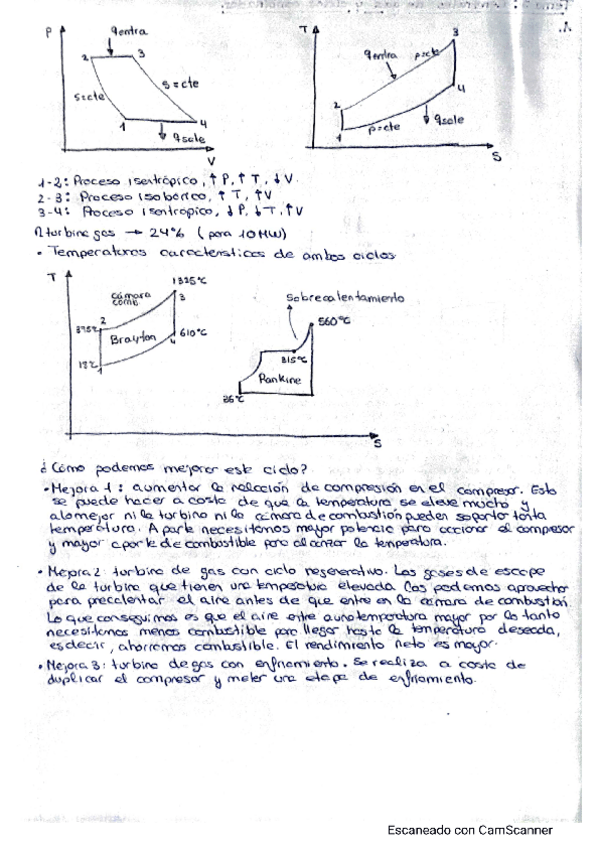 P
qentra
2
3
s=cte
s=cte
1
4
qsale
V
T
3
qentra
p=cte
4
2
qsale
1
p=cte
S
1.
1-2: Proceso isentrópico, ↑P, ↑T, ↓V.
2-3: Proceso isobórico, ↑T, ↑V
3-4: Proceso isentrópico, ↓P, ↓T, ↑V
η turbina gas → 24% (para 10MW)
• Temperaturas características de ambos ciclos
T
1325ºC
cámara
comb
3
2
375ºC
Brayton
4
610ºC
1
Sobrecalentamiento
560ºC
315ºC
Rankine
36ºC
S
¿Cómo podemos mejorar este ciclo?
• Mejora 1: aumentar la relación de compresión en el compresor. Esto
se puede hacer a costa de que la temperatura se eleve mucho y
alomejor ni la turbina ni la cámara de combustión pueden soportar tanta
temperatura. A parte necesitamos mayor potencia para accionar el compresor
y mayor aporte de combustible para alcanzar la temperatura.
• Mejora 2: turbina de gas con ciclo regenerativo. Los gases de escape
de la turbina que tienen una temperatura elevada los podemos aprovechar
para precalentar el aire antes de que entre en la cámara de combustión.
Lo que conseguimos es que el aire entre a una temperatura mayor por lo tanto
necesitamos menos combustible para llegar hasta la temperatura deseada,
es decir, ahorramos combustible. El rendimiento neto es mayor.
• Mejora 3: turbina de gas con enfriamiento. Se realiza a costa de
duplicar el compresor y meter una etapa de enfriamiento.
Escaneado con CamScanner